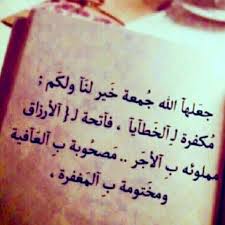 جعلهآ الله جُمعة خَير لنَآ ولكَم ;
مكفرة لـِ آلخطَآيآ ، فَآتحة لـ { آلأرزاق
مملوئه بِ آلأجَر .. مَصحُوبة بِ آلعَآفية
ومَختومة بِ آلمَغفرة ،